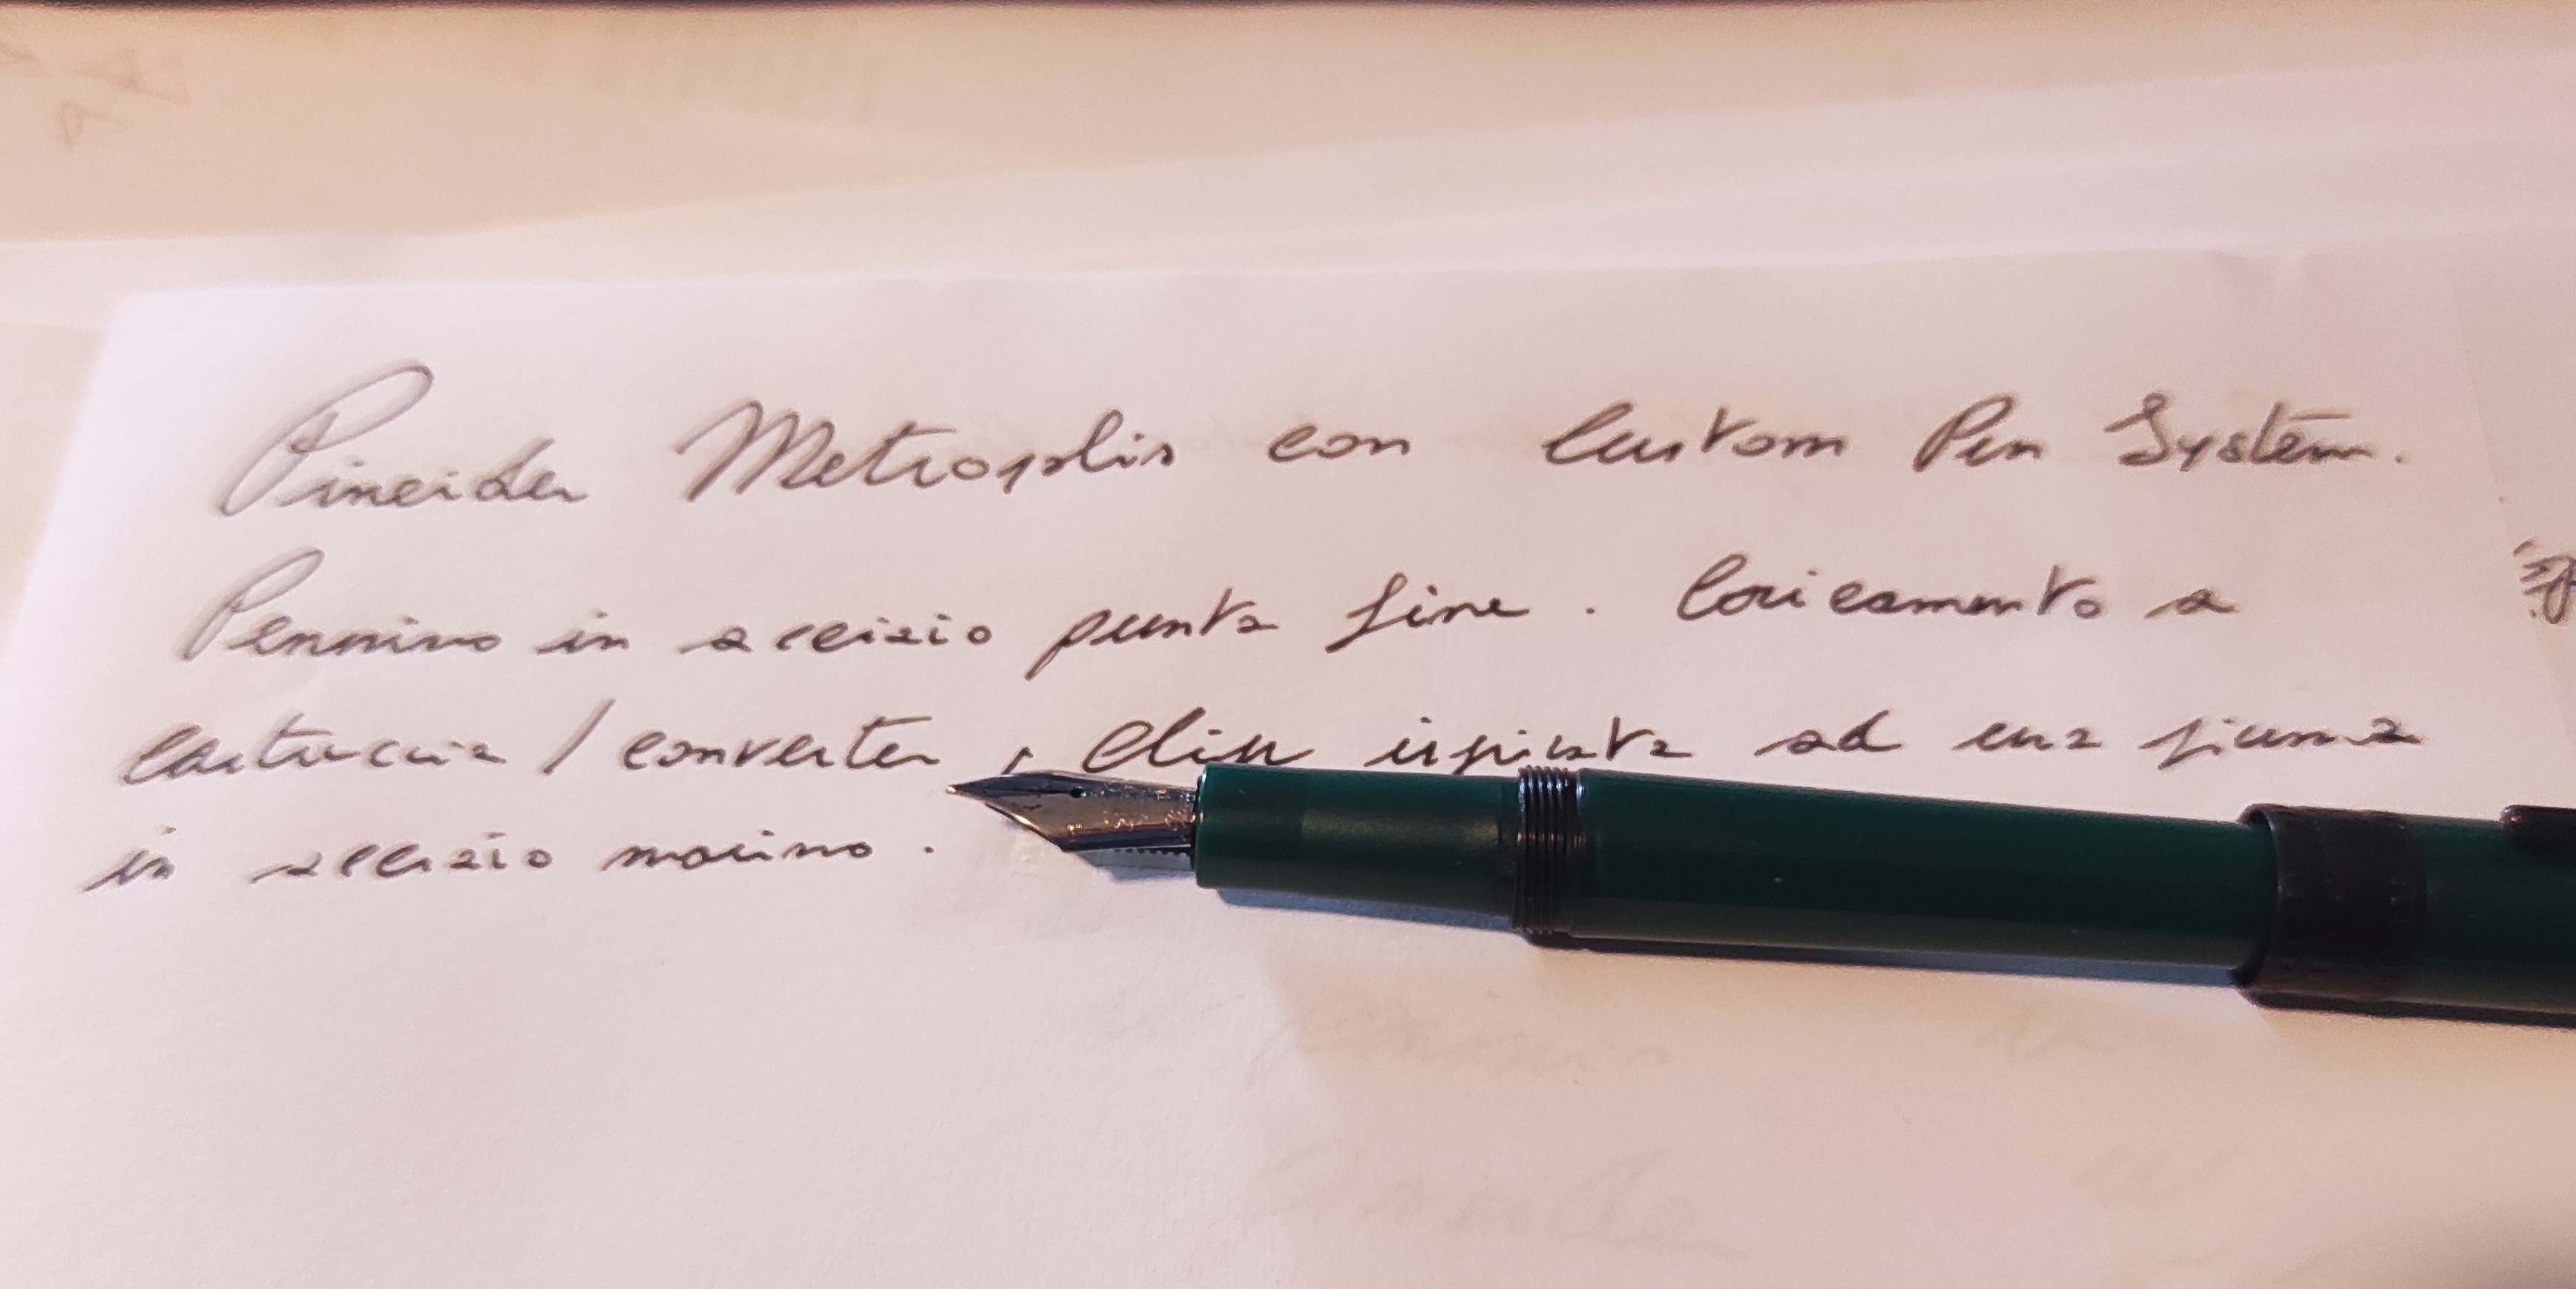 Pineider Metroplis con Custom Pen System.
Pennino in acciaio punta fine. Caricamento a
cartuccia / converter, Clip ispirata ad una piuma
in acciaio marino.